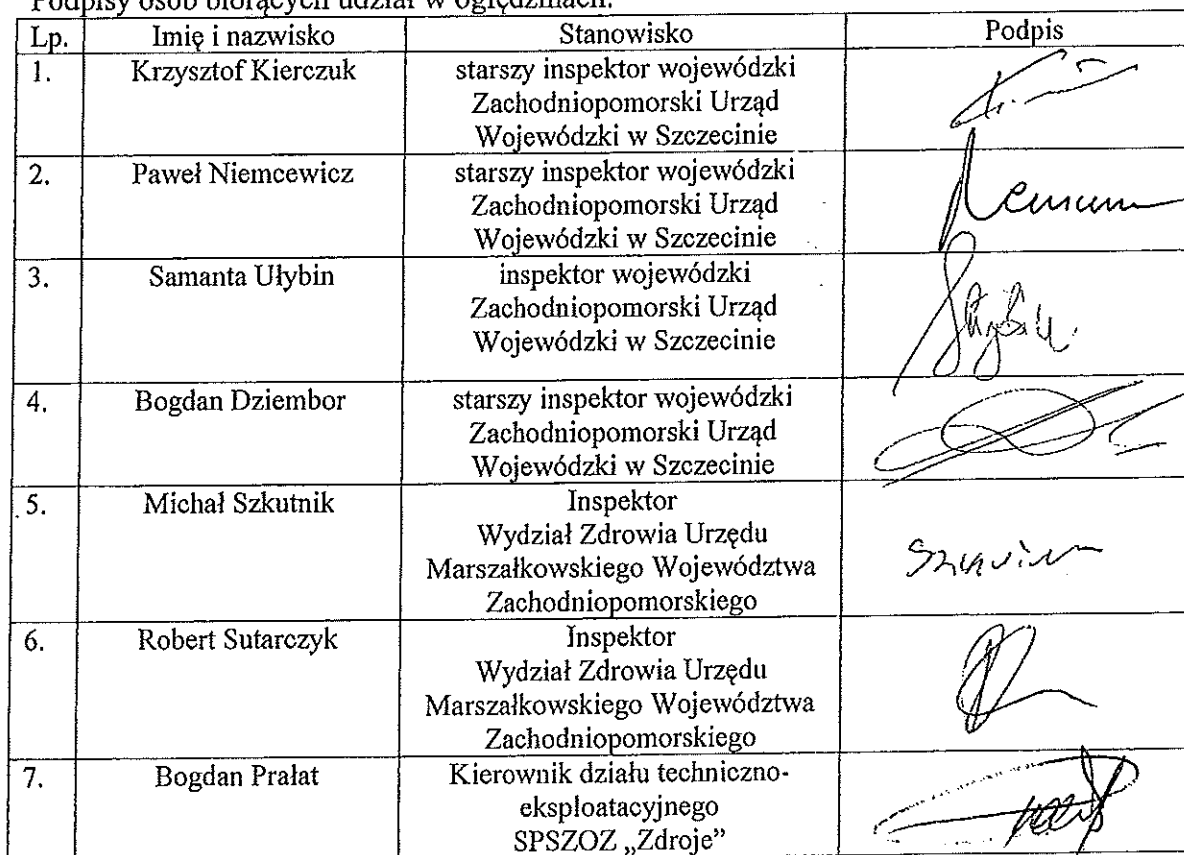 Podpisy osób biorących udział w oględzinach:
Lp. Imię i nazwisko Stanowisko Podpis
1. Krzysztof Kierczuk starszy inspektor wojewódzki
Zachodniopomorski Urząd
Wojewódzki w Szczecinie
2. Paweł Niemcewicz starszy inspektor wojewódzki
Zachodniopomorski Urząd
Wojewódzki w Szczecinie
3. Samanta Ułybin inspektor wojewódzki
Zachodniopomorski Urząd
Wojewódzki w Szczecinie
4. Bogdan Dziembor starszy inspektor wojewódzki
Zachodniopomorski Urząd
Wojewódzki w Szczecinie
5. Michał Szkutnik Inspektor
Wydział Zdrowia Urzędu
Marszałkowskiego Województwa
Zachodniopomorskiego
6. Robert Sutarczyk Inspektor
Wydział Zdrowia Urzędu
Marszałkowskiego Województwa
Zachodniopomorskiego
7. Bogdan Prałat Kierownik działu techniczno-
eksploatacyjnego
SPSZOZ „Zdroje”